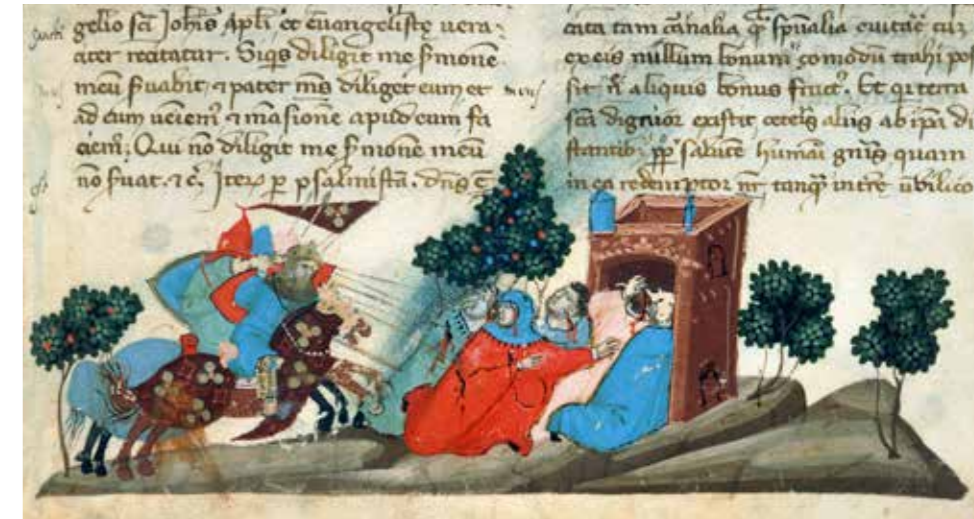 gelio scī Johīs Apłi et euangeliste uera-
citer recitatur. Siqs diligit me s̄mone
meū s̄uabit, ⁊ pater ms̄ diliget eum et
ad eum ueiem̄ ⁊ māsione apud eum fa
ciem̄; Qui nō diligit me s̄mone meū
nō s̄uat. ⁊ c̄. Iteꝝ p psalmistā. dn̄s ē
cata tam car̄nalia q̄ȝ sp̄ualia euitar̄e cuȝ
ex eis nullum bonum comodū trahi pos
sit n̄ aliquis bonus fruct᾽. Et qȝ terra
scā dignior existit ceteris aliis ab ip̄a di
stantibȝ pp̄ salute humai gn̄is quam
in ea redemptor nr̄ tanqȝ in tre ūbilico